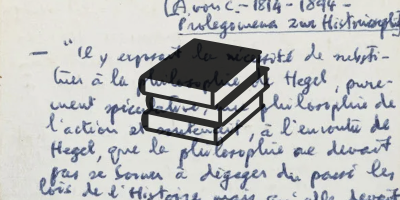 (A. von C. - 1814 - 1894 -
Prolegomena zur Historiosophie
— "Il y exposait la nécessité de substi-
tuer à la philosophie de Hegel, pure-
ment spéculative, une philosophie de
l'action et soutenait, à l'encontre de
Hegel, que la philosophie ne devait
pas se borner à dégager du passé les
lois de l'Histoire mais qu'elle devait